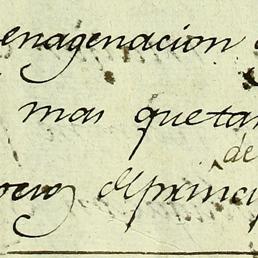 enagenacion
mas que tan
de
ocio, del princi